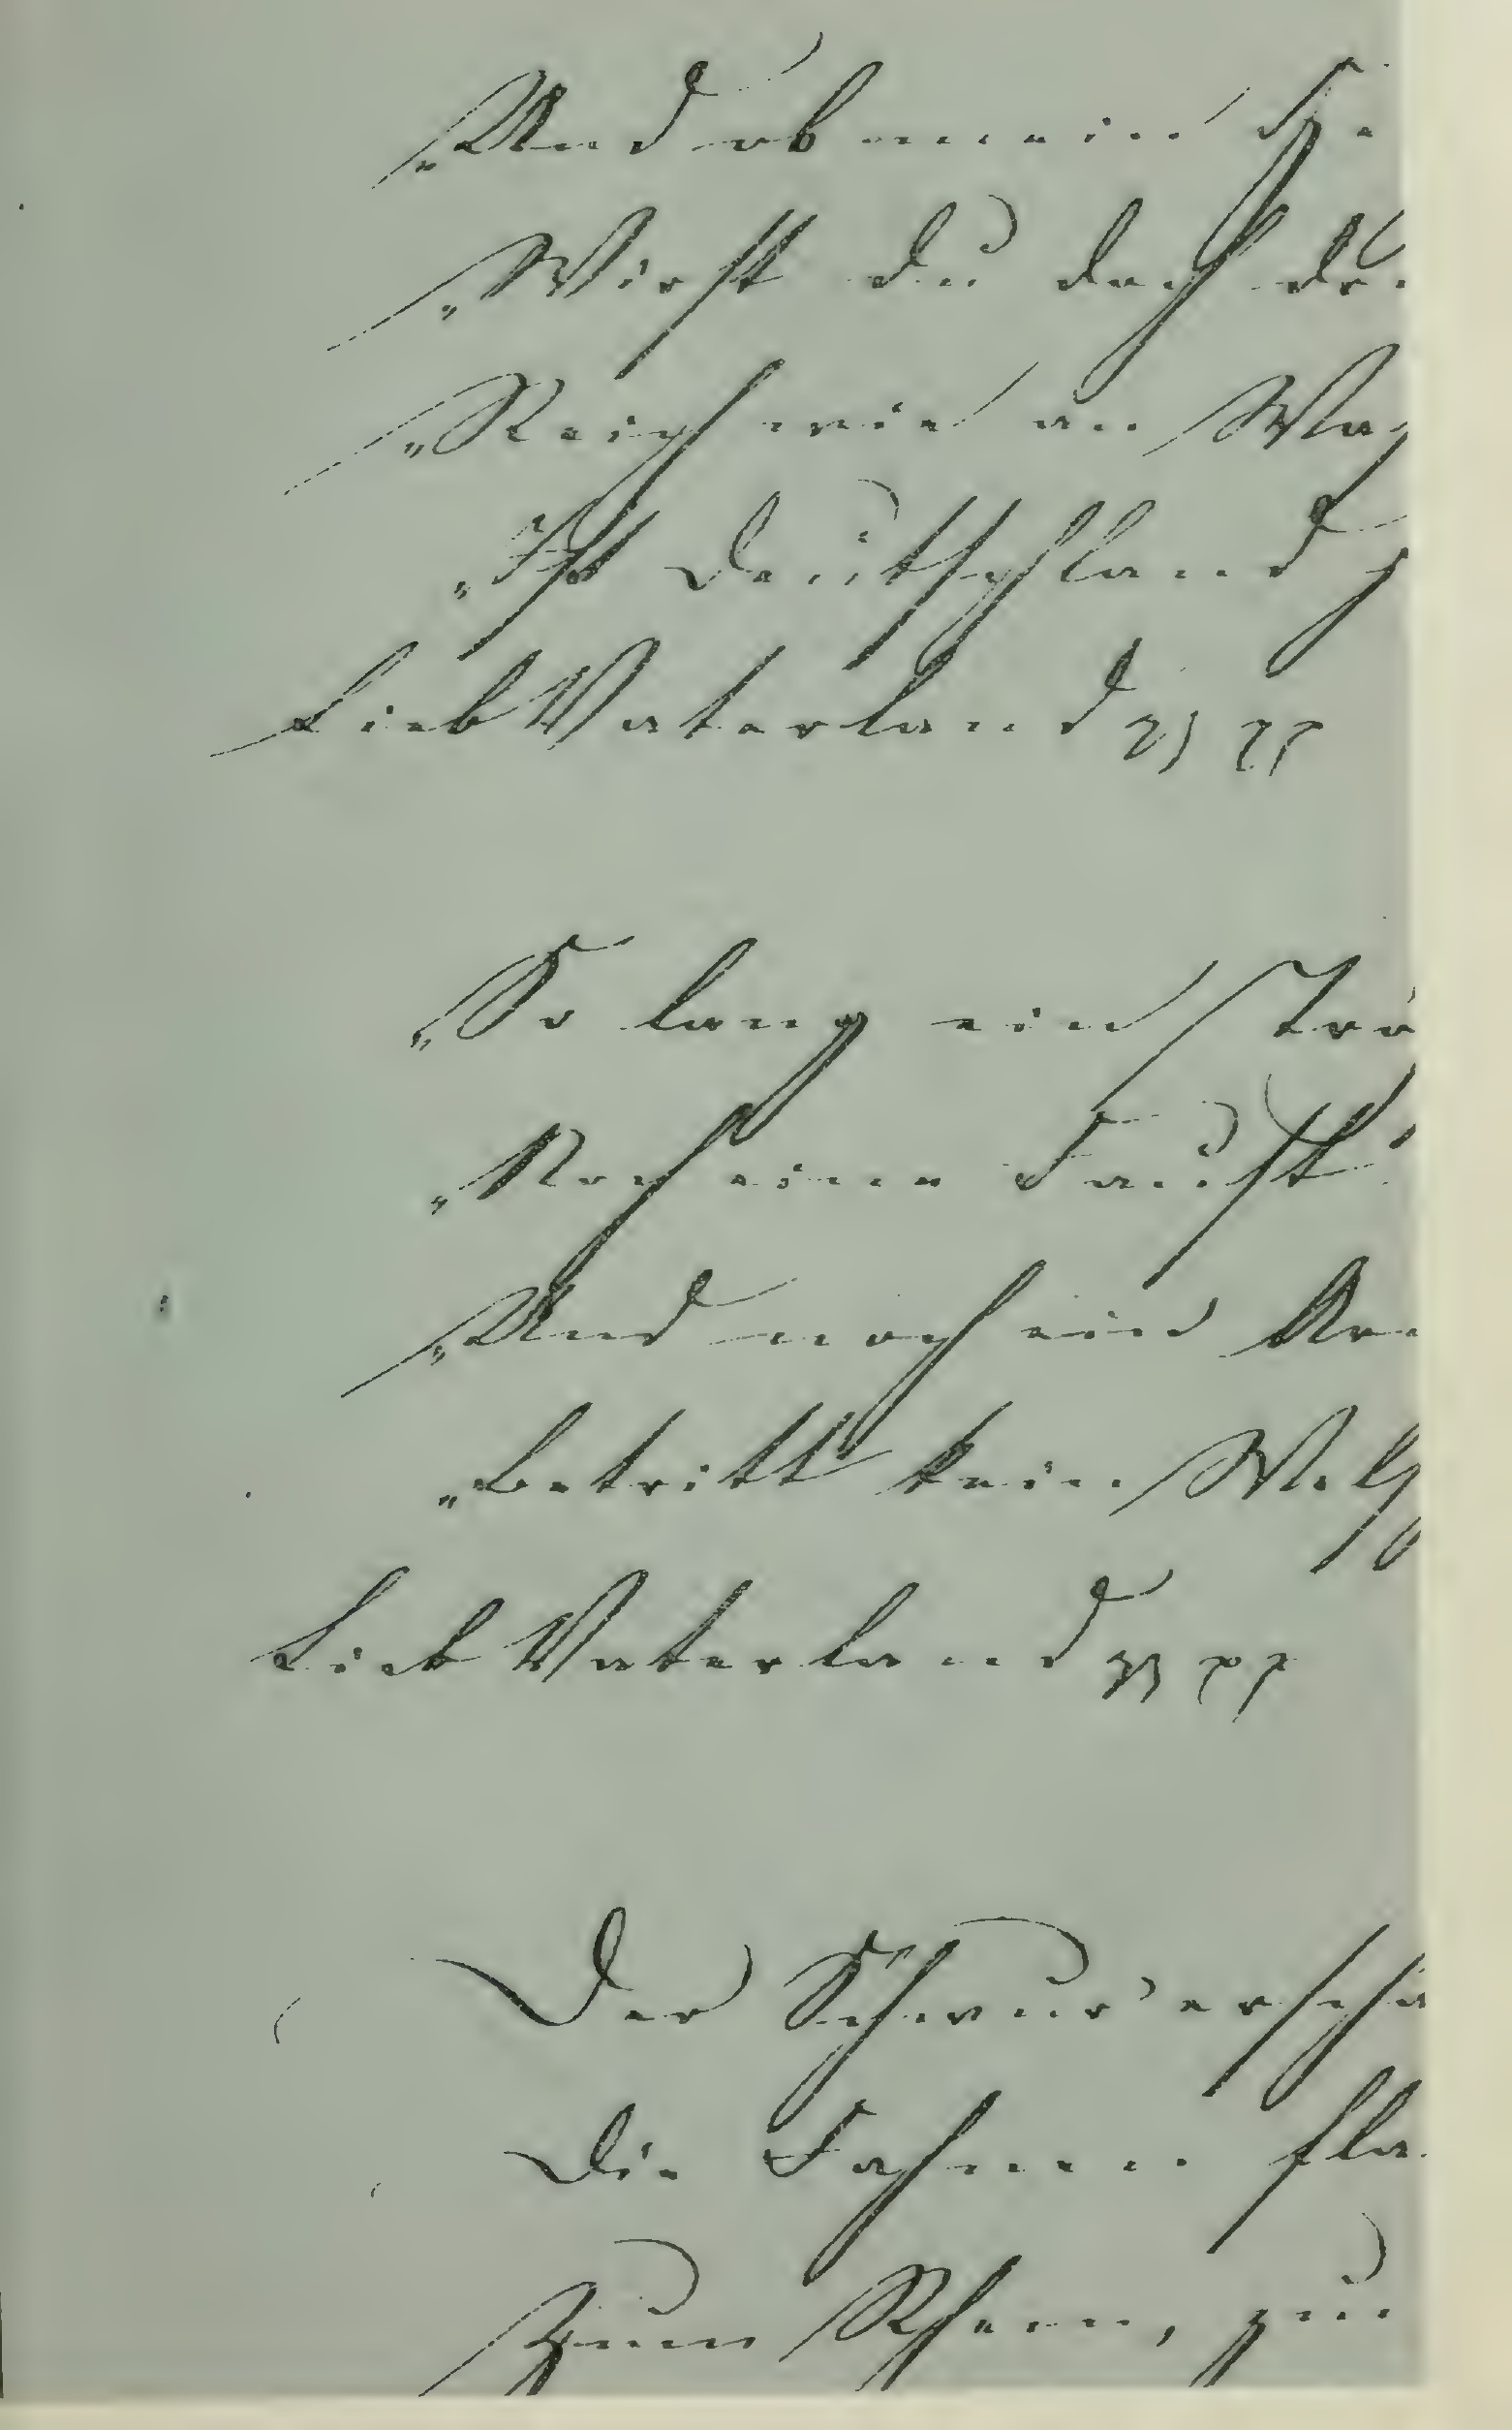 „Und ob mein He
„Wirst du doch dr
„Reich wie an Wa
„Ist Deutschland j
Lieb Vaterland pp pp
„So lang ein Tro
„Noch eine Faust
„Und noch ein Ar
„Betritt kein Welsch
Lieb Vaterland pp pp
Der Schwur erscha
Die Fahnen fla
Zum Rhein, zum